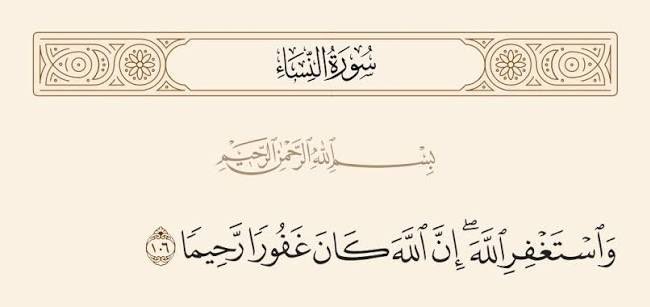 سُورَةُ النِّسَاءِ
بِسْمِ اللَّهِ الرَّحْمَٰنِ الرَّحِيمِ
وَٱسْتَغْفِرِ ٱللَّهَۖ إِنَّ ٱللَّهَ كَانَ غَفُورًا رَّحِيمًا ١٠٦